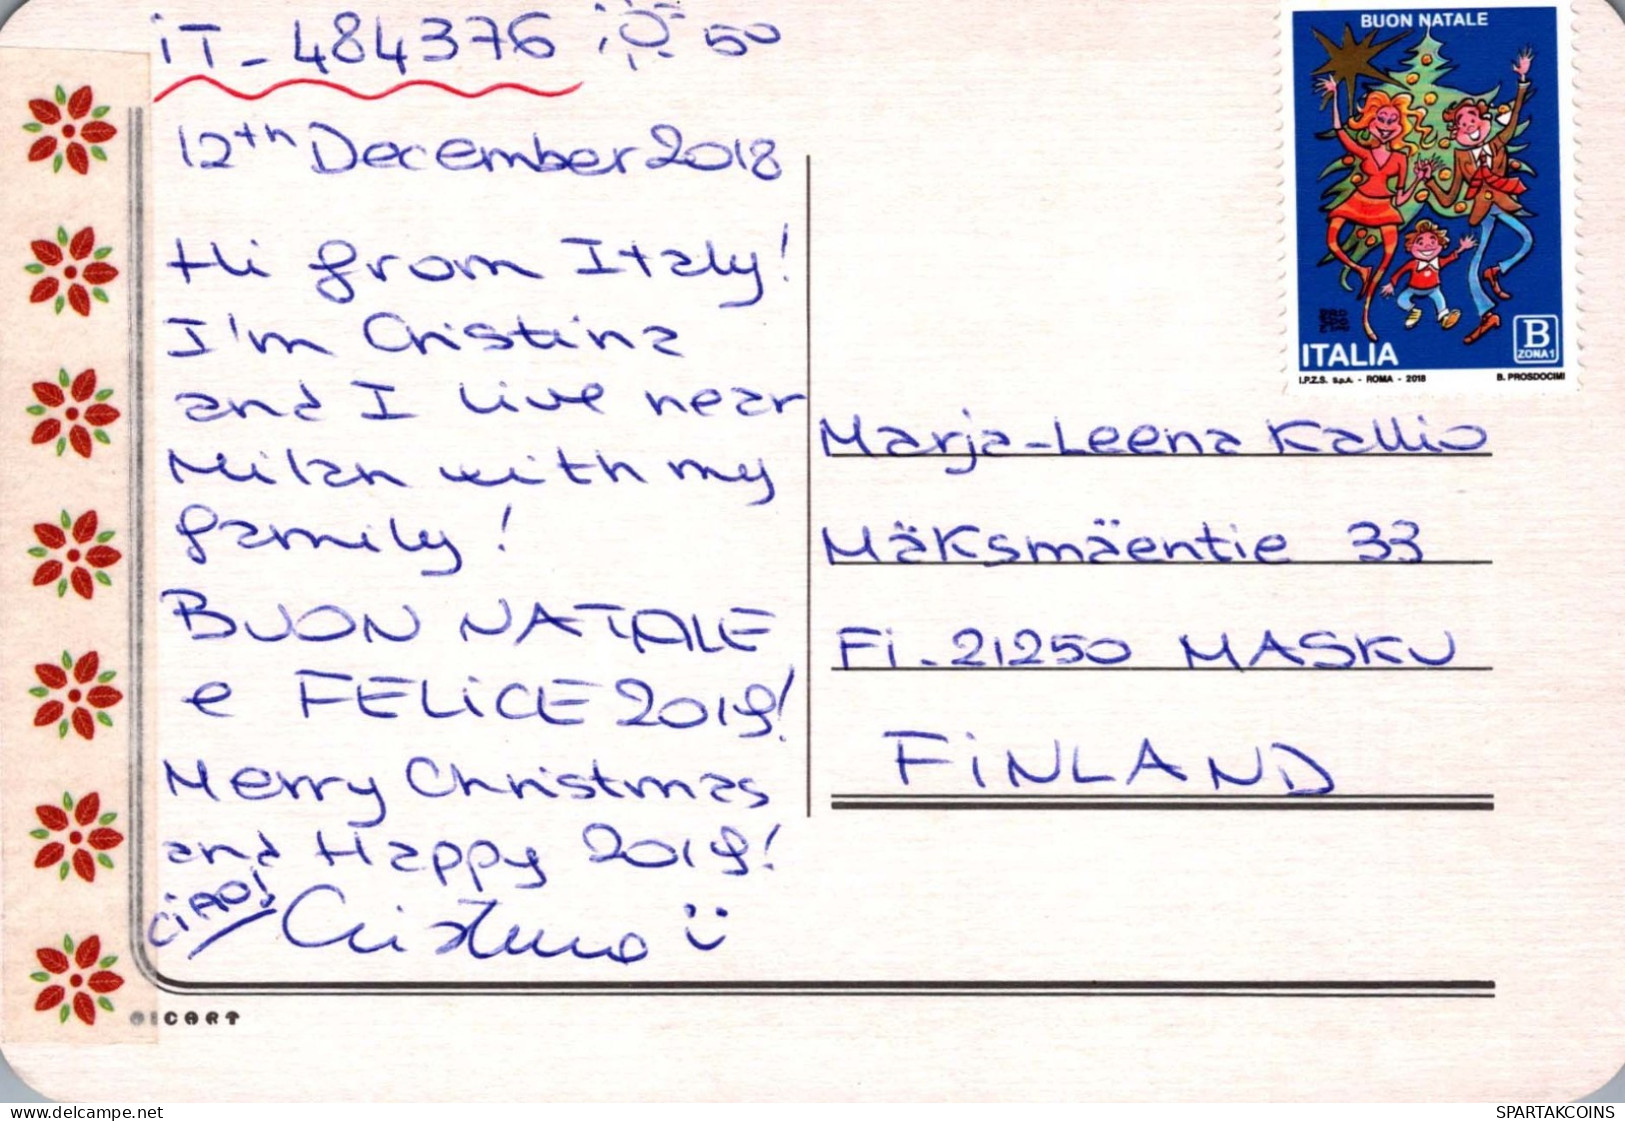 iT-484376 50
12th December 2018
Hi from Italy!
I'm Cristina
and I live near
Milan with my
family!
BUON NATALE
e FELiCE 2019!
Merry Christmas
and Happy 2019!
CiAO! Cristina
BUON NATALE
ITALIA
B
ZONA 1
I.P.Z.S. S.p.A. - ROMA - 2018
B. PROSDOCIMI
Marja-Leena Kallio
Mäksmäentie 33
Fi-21250 MASKU
FiNLAND
www.delcampe.net
SPARTAKCOINS